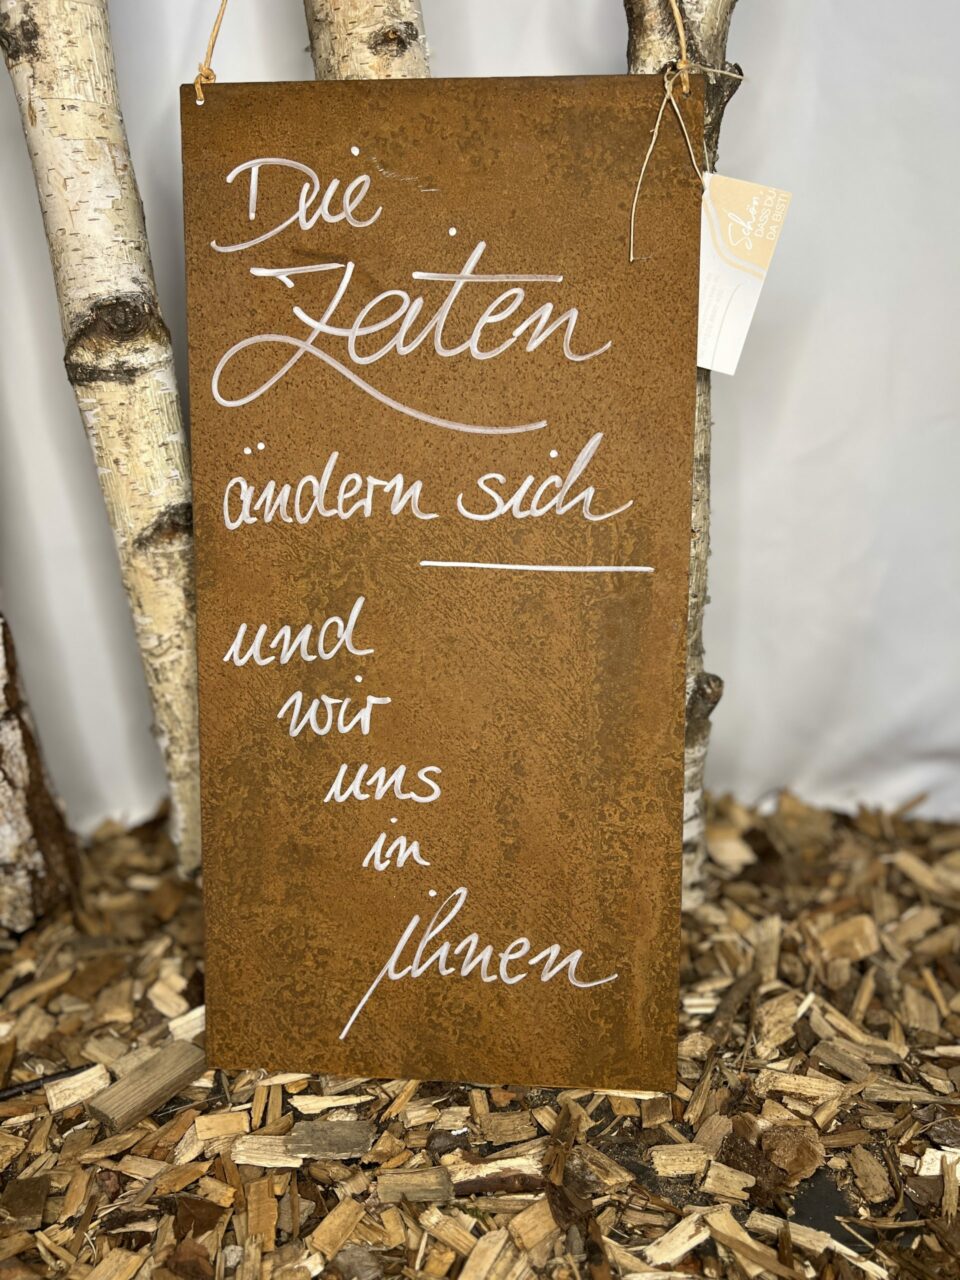 Die
Zeiten
ändern sich
und
wir
uns
in
ihnen
Schön
DASS DU
DA BIST!